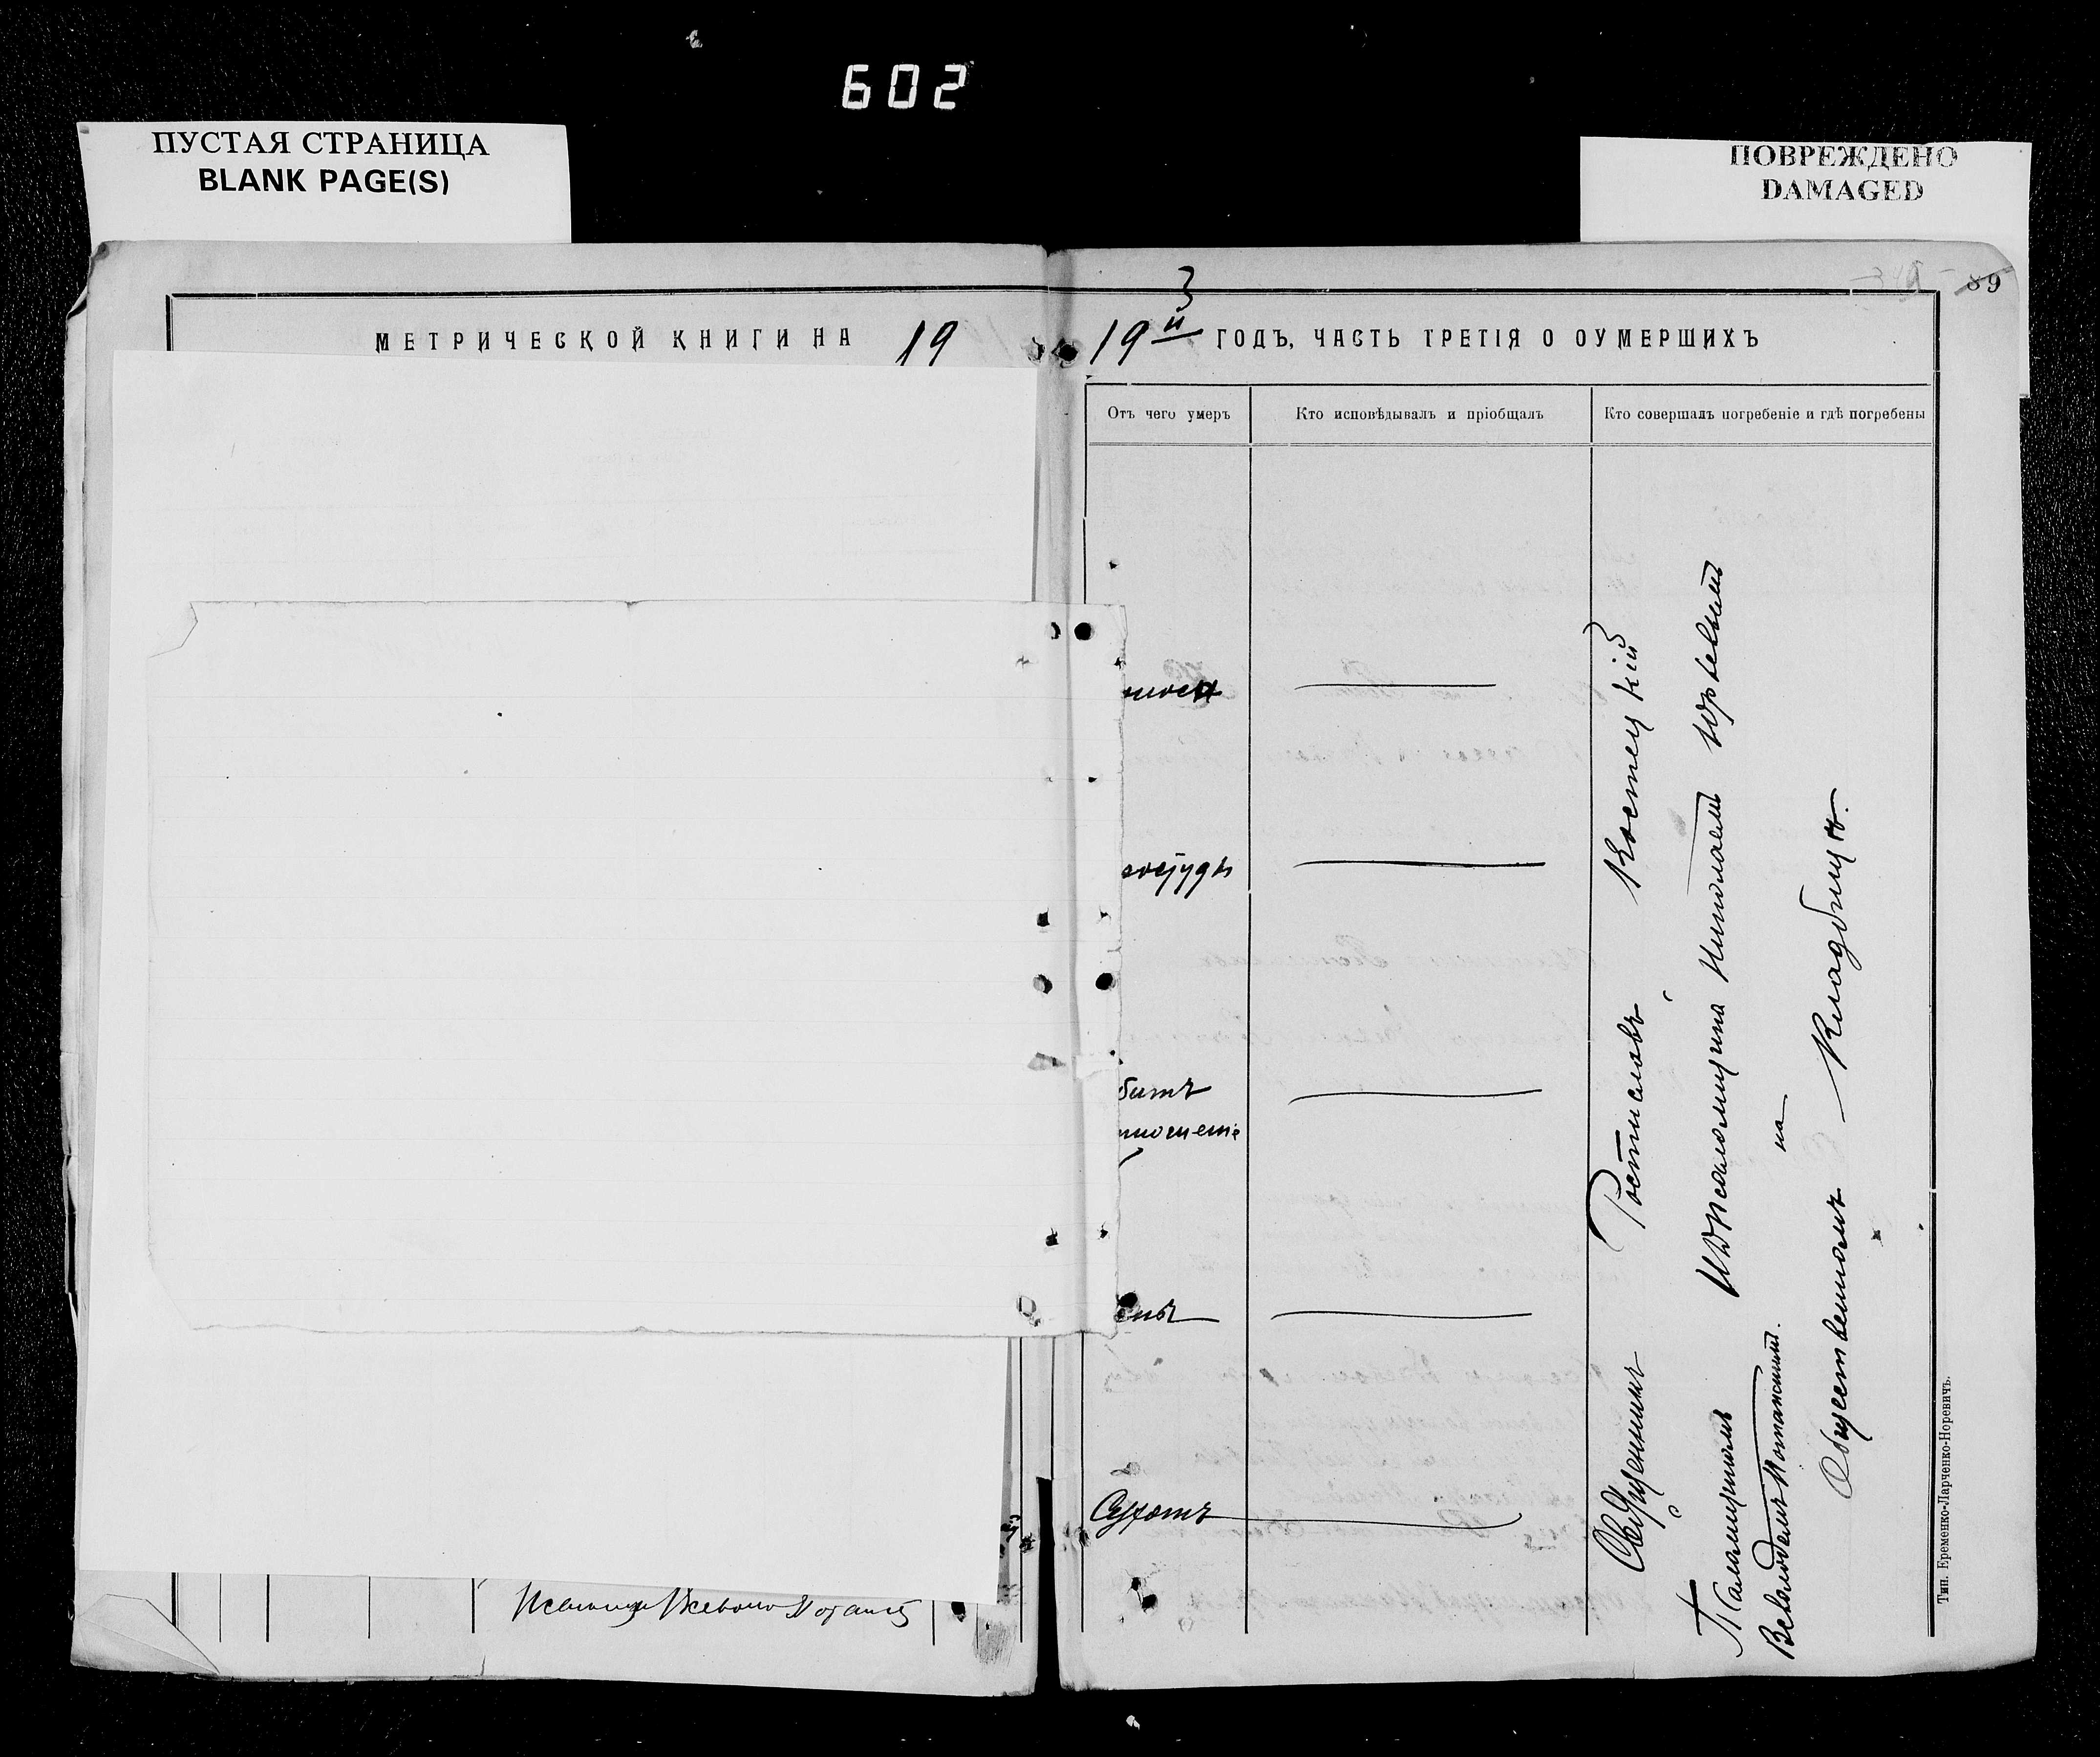 602
ПУСТАЯ СТРАНИЦА
BLANK PAGE(S)
ПОВРЕЖДЕНО
DAMAGED
89
МЕТРИЧЕСКОЙ КНИГИ НА 19
19 ГОДЪ, ЧАСТЬ ТРЕТІЯ О ОУМЕРШИХЪ
Отъ чего умеръ
Кто исповѣдывалъ и пріобщалъ
Кто совершалъ погребеніе и гдѣ погребены
Священникъ Ростиславъ Костецкій
И Д Псаломщика Николаемъ Юрьевымъ
Паламаремъ
Всеволодомъ
на
Общественномъ Кладбищѣ.
Сухотъ
Тип. Еременко-Ларченко-Норевичъ.